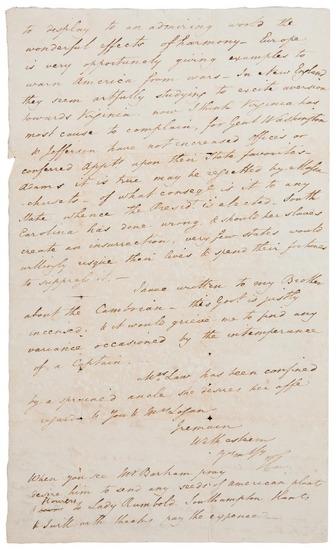 to display to an admiring world the
wonderful effects of harmony – Europe
is very opportunely giving examples to
warn America from wars – in New England
they seem artfully studying to excite aversion
towards Virginia. now I think Virginia has
most cause to complain, for Genl Washington
& Jefferson have not increased offices or
conferred Appts upon their State favourites –
Adams it is true may be respected by Massa-
chusets – of what conseqe is it to any
State whence the Presidt is elected. South
Carolina has done wrong & should her slaves
create an insurrection, very few states would
willingly risque their lives & spend their fortunes
to suppress it –
I have written to my Brother
about the Cambrian – this Govt is justly
incensed & it would grieve me to find any
variance occasioned by the intemperance
of a Captain.
Mrs Law has been confined
by a sprained ancle she desires her affe
regards to You & Mrs Logan
I remain
With esteem
Yrs
When you see Mr Barham pray
desire him to send any seeds of american plant
flowers to Lady Rumbold Southampton Hants
& I will with thanks pay the expence –